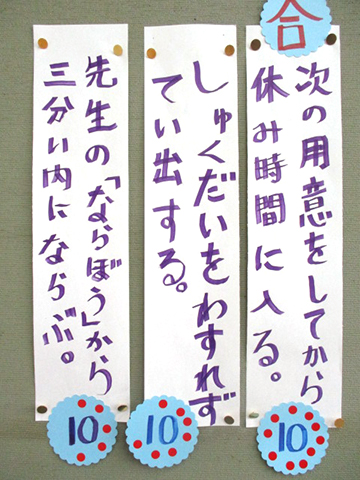 合
次の用意をしてから
休み時間に入る。
10
しゅくだいをわすれず
てい出する。
10
先生の「ならぼう」から
三分い内にならぶ。
10